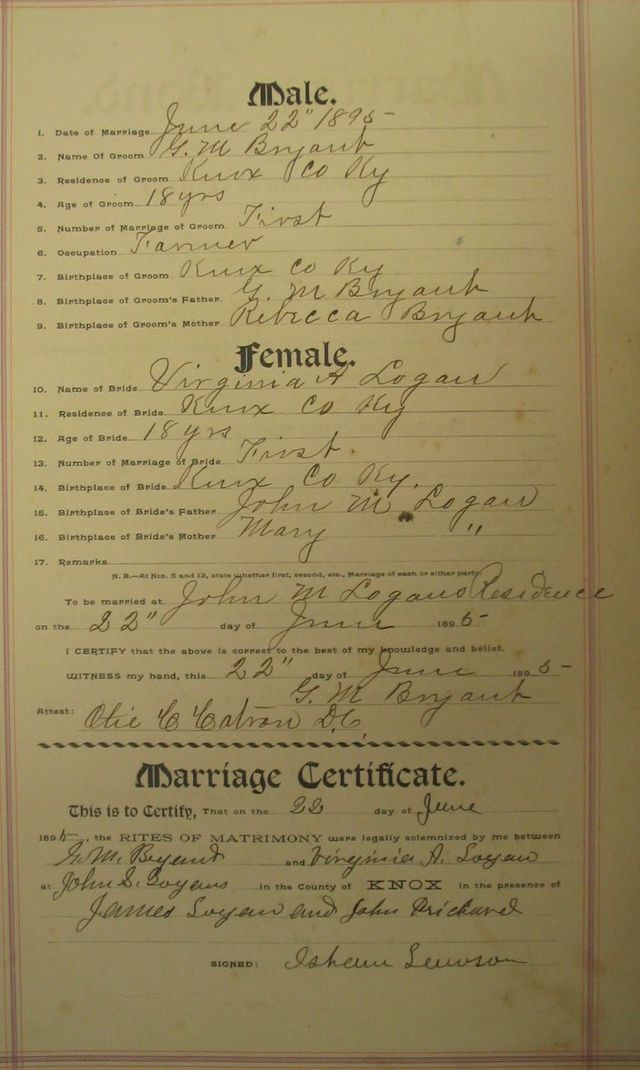 Male.
1. Date of Marriage June 22" 1895
2. Name Of Groom G. M Bryant
3. Residence of Groom Knox Co Ky
4. Age of Groom 18 yrs
5. Number of Marriage of Groom First
6. Occupation Farmer
7. Birthplace of Groom Knox Co Ky
8. Birthplace of Groom's Father G. M Bryant
9. Birthplace of Groom's Mother Rebecca Bryant
Female.
10. Name of Bride Virginia A Logan
11. Residence of Bride Knox Co Ky
12. Age of Bride 18 yrs
13. Number of Marriage of Bride First
14. Birthplace of Bride Knox Co Ky.
15. Birthplace of Bride's Father John M Logan
16. Birthplace of Bride's Mother Mary "
17. Remarks
N. B.—At Nos. 5 and 13, state whether first, second, etc., Marriage of each or either party.
To be married at John M Logans Residence
on the 22" day of June 1895
I CERTIFY that the above is correct to the best of my knowledge and belief.
WITNESS my hand, this 22" day of June 1895
G. M Bryant
Attest: Olie C Catron D.C
Marriage Certificate.
This is to Certify, That on the 22 day of June
1895, the RITES OF MATRIMONY were legally solemnized by me between
G. M. Bryant and Virginia A. Logan
at John S. Logans in the County of KNOX in the presence of
James Logan and John Prichard
SIGNED: Isham Lawson